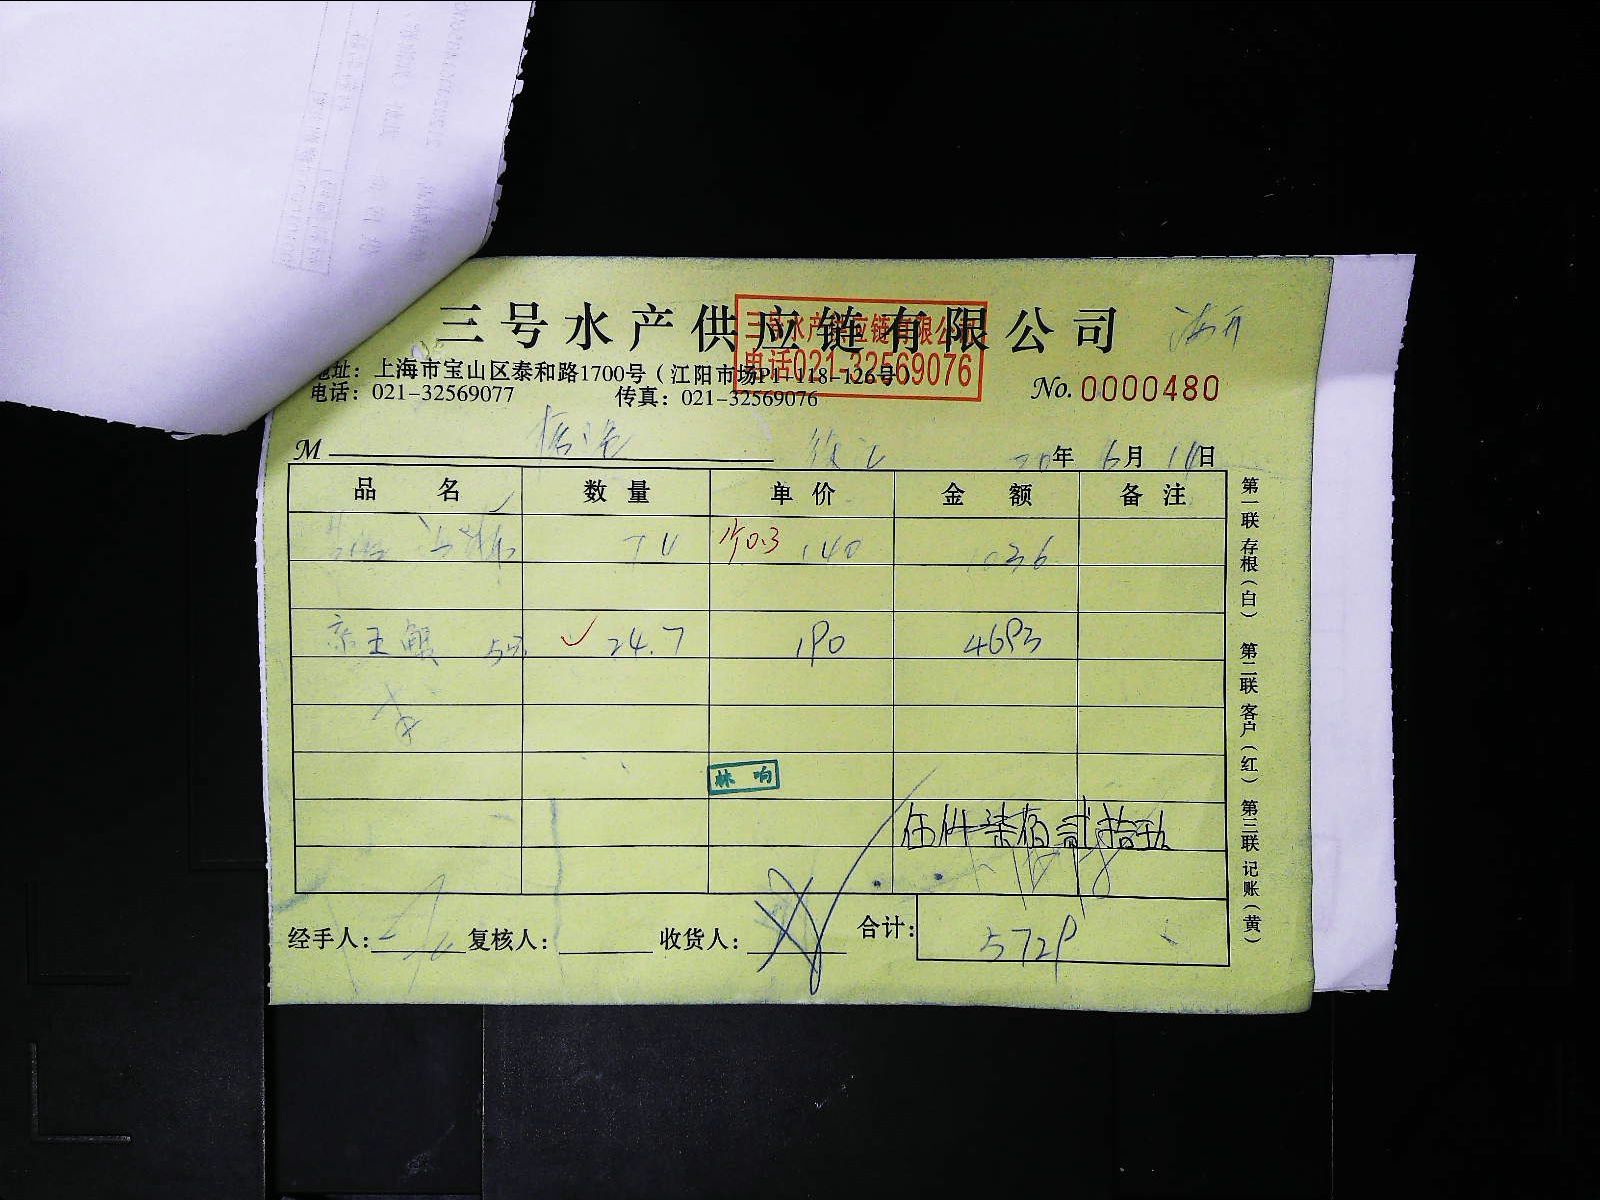 三号水产供应链有限公司
三号水产供应链有限公司
电话021-32569076
地址：上海市宝山区泰和路1700号（江阳市场P1-118-126号）
电话：021-32569077 传真：021-32569076
No. 0000480
M
20年 6月 日
品名 数量 单价 金额 备注
140 1036
王蟹 24.7 190 4693
林响
伍仟柒佰贰拾玖
经手人： 复核人： 收货人： 合计： 5729
第一联 存根（白） 第二联 客户（红） 第三联 记账（黄）